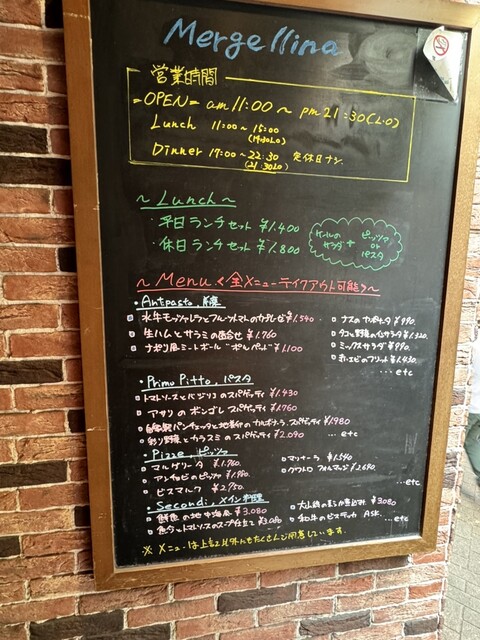 Mergellina
営業時間
=OPEN= am 11:00 ～ pm 21:30(L.O)
Lunch 11:00～15:00
(14:30LO)
Dinner 17:00～22:30 定休日ナシ.
(21:30LO)
～Lunch～
・平日ランチセット ¥1,400
・休日ランチセット ¥1,800
ケールのサラダ + ピッツァ or パスタ
～Menu <全メニューテイクアウト可能>～
・Antipasto. 前菜
水牛モッツァレラとフルーツトマトのカプレーゼ ¥1,540
生ハムとサラミの盛合せ ¥1,760
ナポリ風ミートボール "ポルペッテ" ¥1,100
ナスのカポナータ ¥990.
タコと野菜のサラダ ¥1,320
ミックスサラダ ¥990.
赤エビのフリット ¥1,430.
...etc
・Primo Pitto. パスタ
トマトソースとバジリコのスパゲッティ ¥1,430
アサリのボンゴレ スパゲッティ ¥1,760
自家製パンチェッタと地養卵のカルボナーラ. スパゲッティ ¥1,980
彩り野菜とカラスミのスパゲッティ ¥2,090 ... etc
・Pizze. ピッツァ
マルゲリータ ¥1,760.
アンチョビのピッツァ ¥1,980.
ビスマルク ¥2,750
マリナーラ ¥1,540
クワトロ フォルマッジ ¥2,640
...etc
・Secondi. メイン料理
鮮魚の地中海風 ¥3,080
魚介とトマトソースのスープ仕立て ¥3,080
大山鶏の ¥3,080
和牛のビステッカ ASK. ...etc
※ メニューは上記以外にもたくさんご用意しています.